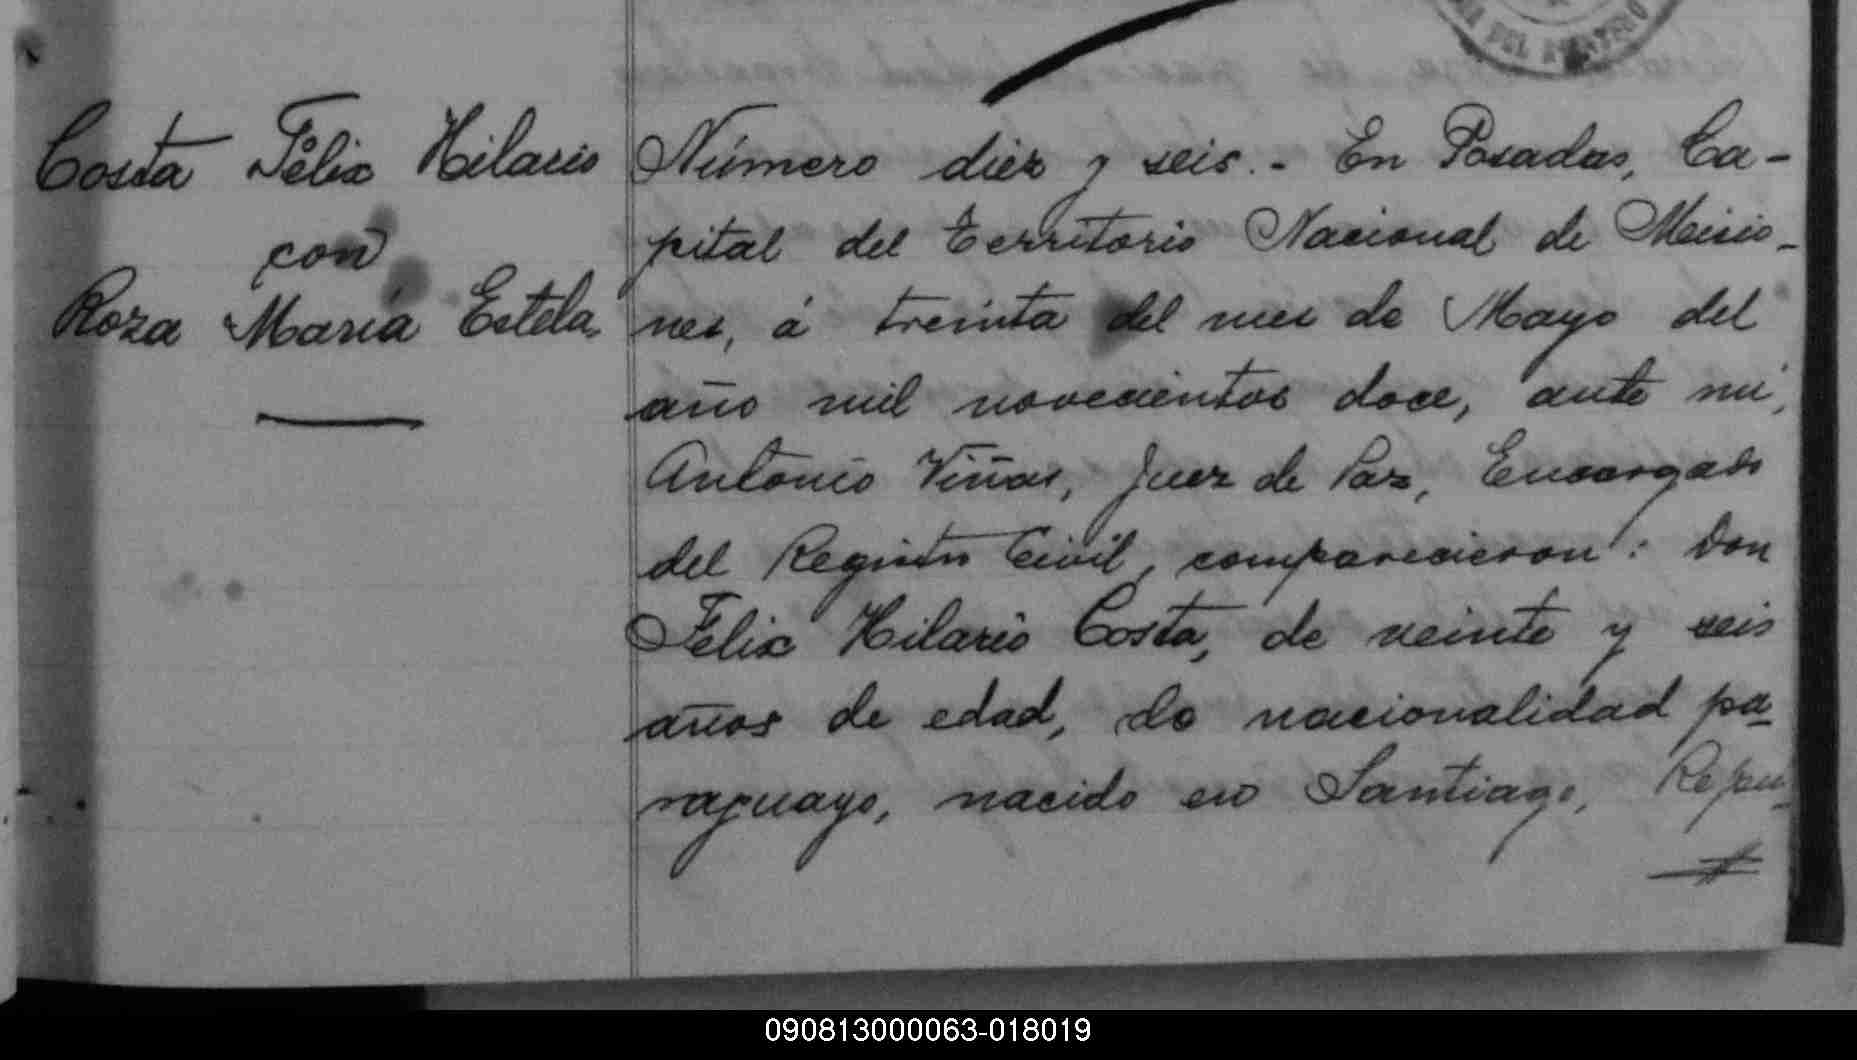 Costa Félix Hilario
con
Roza María Estela.
Número diez y seis.- En Posadas, Ca-
pital del territorio Nacional de Misio-
nes, á treinta del mes de Mayo del
año mil novecientos doce, ante mi,
Antonio Viñas, Juez de Paz, Encargado
del Registro Civil, comparecieron: Don
Felix Hilario Costa, de veinte y seis
años de edad, de nacionalidad pa-
raguayo, nacido en Santiago, Repu-
090813000063-018019